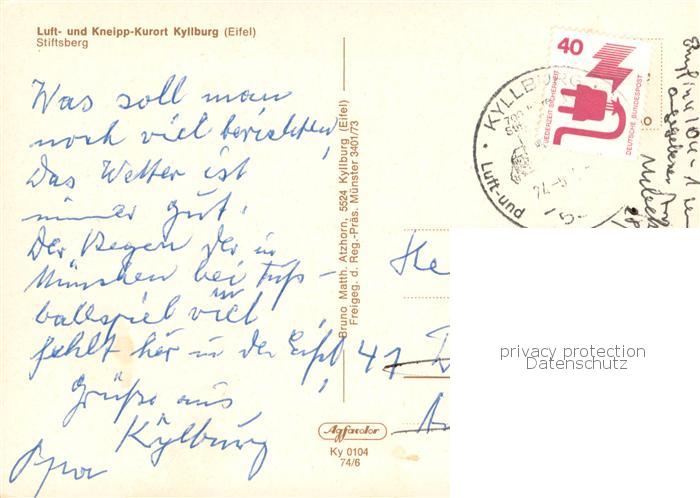 Luft- und Kneipp-Kurort Kyllburg (Eifel)
Stiftsberg
Was soll man
noch viel berichten,
das Wetter ist
immer gut.
Der Regen der in
München bei Fuß-
ballspiel viel
fehlt hier in der Eifel
Grüße aus
Kyllburg
Opa
Bruno Matth. Atzhorn, 5524 Kyllburg (Eifel)
Freigeg. d. Reg.-Präs. Münster 3401/73
Agfacolor
Ky 0104
74/6
40
JEDERZEIT SICHERHEIT
DEUTSCHE BUNDESPOST
KYLLBURG
Luft-und
He
47
privacy protection
Datenschutz